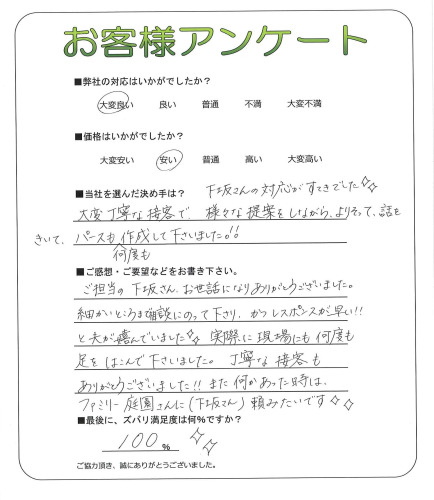 お客様アンケート
■弊社の対応はいかがでしたか?
大変良い 良い 普通 不満 大変不満
■価格はいかがでしたか?
大変安い 安い 普通 高い 大変高い
■当社を選んだ決め手は? 下坂さんの対応がすてきでした
大変丁寧な接客で、様々な提案をしながら、よりそって、話を
きいて、パースも何度も作成して下さいました!!
■ご感想・ご要望などをお書き下さい。
ご担当の下坂さん、お世話になりありがとうございました。
細かいところまで相談にのって下さり、かつレスポンスが早い!!
と夫が喜んでいました 実際に現場にも何度も
足をはこんで下さいました。丁寧な接客も
ありがとうございました!! また何かあった時は、
ファミリー庭園さんに(下坂さん)頼みたいです
■最後に、ズバリ満足度は何%ですか?
100%
ご協力頂き、誠にありがとうございました。